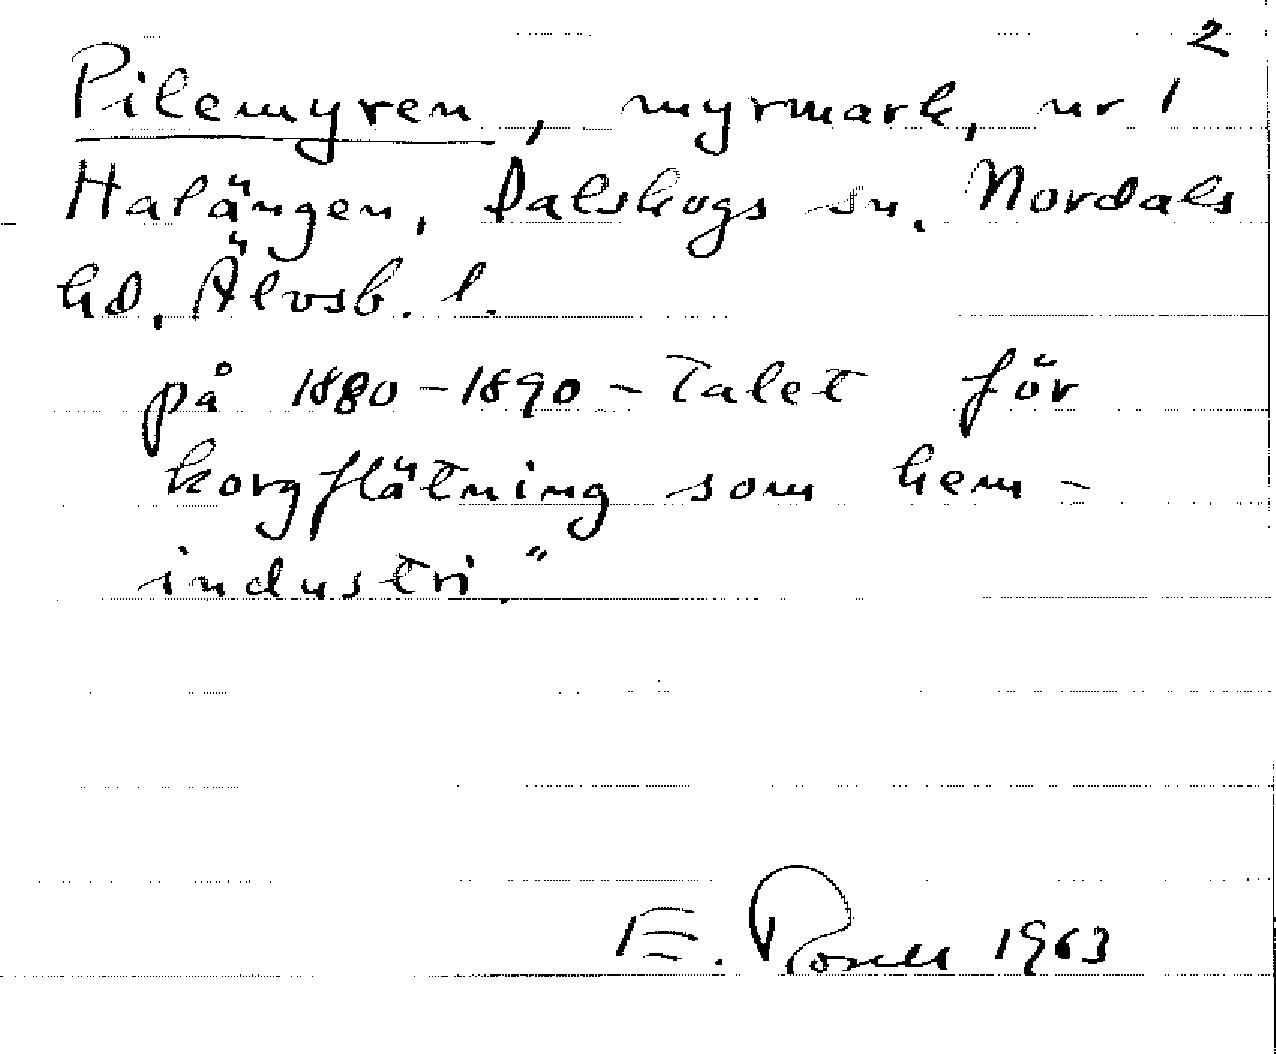 2
Pilemyren, myrmark, nr 1
Halängen, Dalskogs sn, Nordals
hd, Älvsb. l.
på 1880-1890-talet för
korgflätning som hem-
industri."
E. Rosell 1963